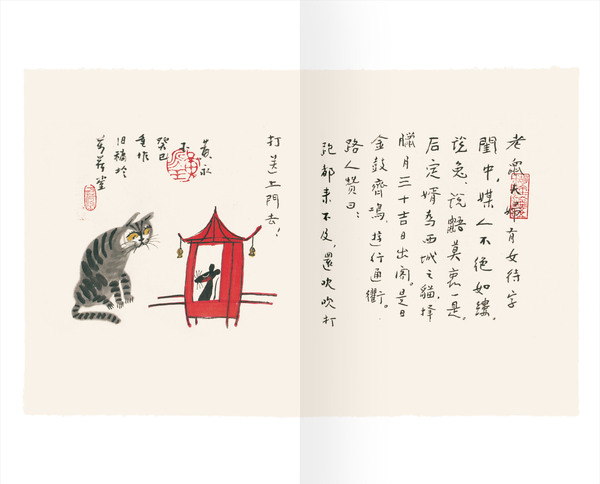 老鼠大嫂有女待字
閨中，媒人不絕如縷，
說兔、說鷄莫衷一是。
后定婿為西城之貓。择
臘月三十吉日出閣。是日
金鼓齊鳴，遊行通衢。
路人贊曰：
跑都来不及，還吹吹打
打送上門去！
黃永
玉
癸巳
重作
旧稿於
萬荷堂